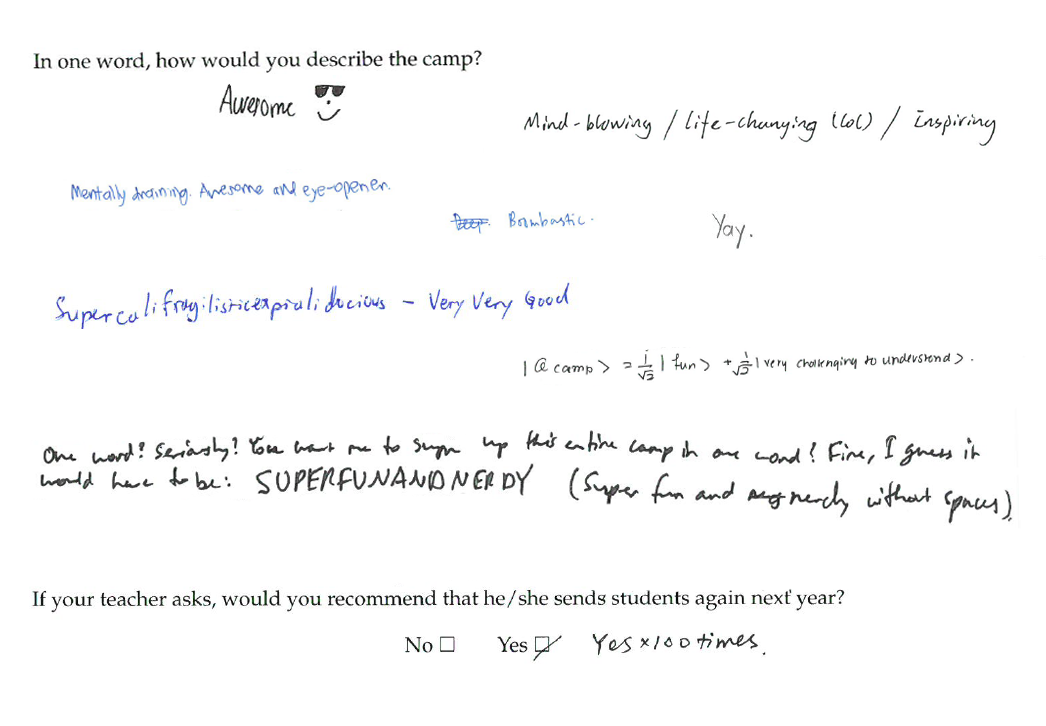 In one word, how would you describe the camp?
Awesome
Mind-blowing / life-changing (lol) / Inspiring
Mentally draining. Awesome and eye-opener.
Deep. Boombastic.
Yay.
Supercalifragilisticexpialidocious - Very Very Good
|@camp> = 1/√2 |fun> + 1/√2 |very challenging to understand>.
One word? Seriously? You want me to sum up this entire camp in one word? Fine, I guess it
would have to be: SUPERFUNANDNERDY (Super fun and nerdy without spaces).
If your teacher asks, would you recommend that he/she sends students again next year?
No ☐ Yes ☑ Yes x100 times.